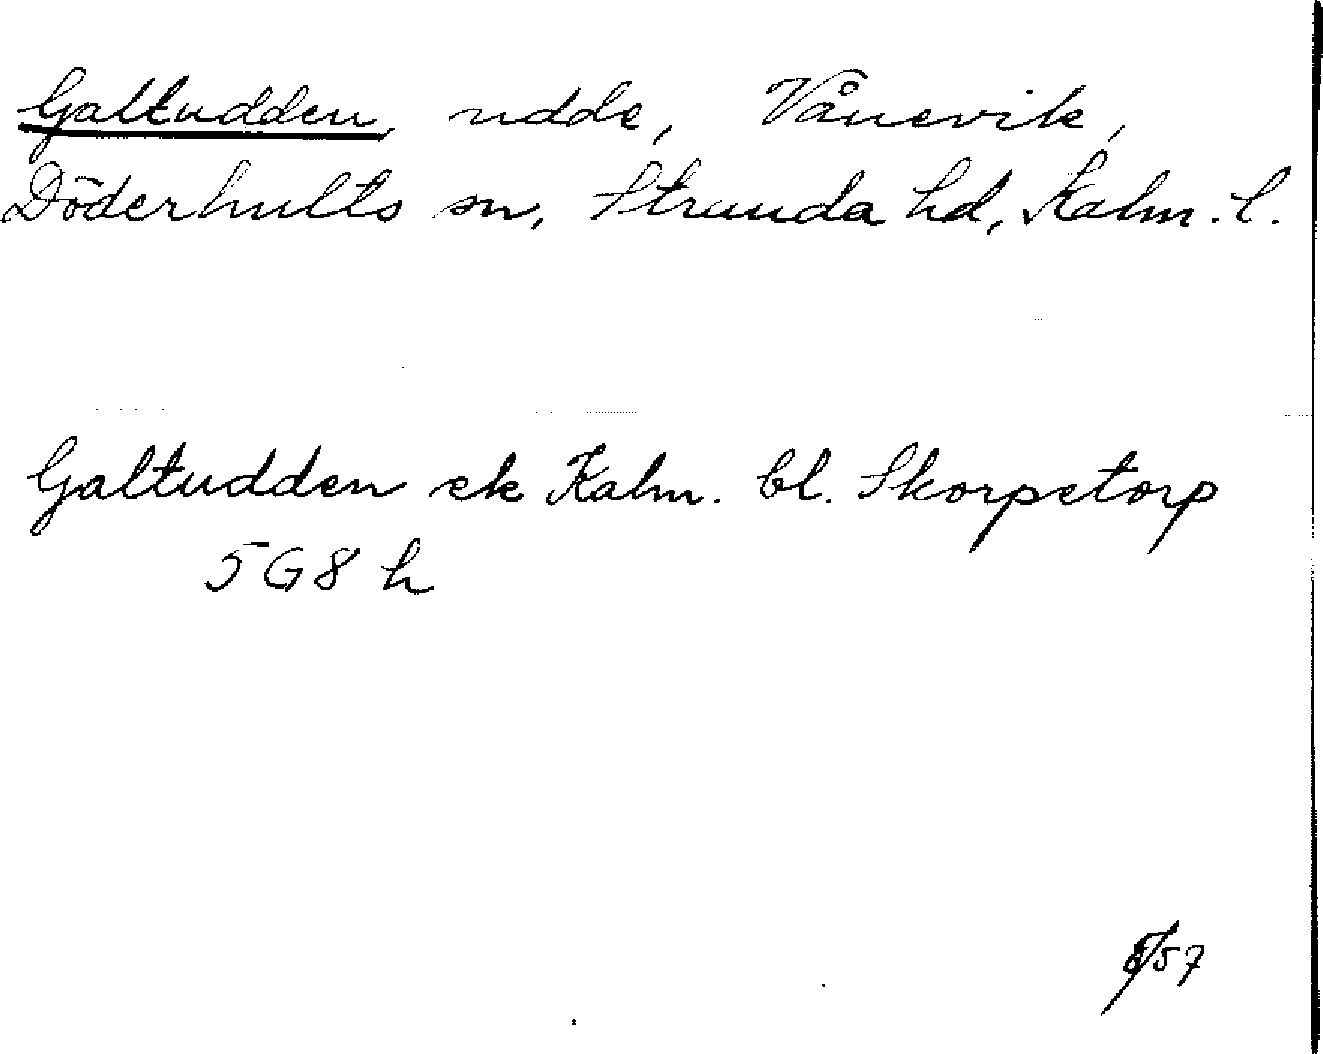 Galtudden, udde, Vånevik,
Döderhults sn, Stranda hd, Kalm. l.
Galtudden ek Kalm. bl. Skorpetorp
5G8 h